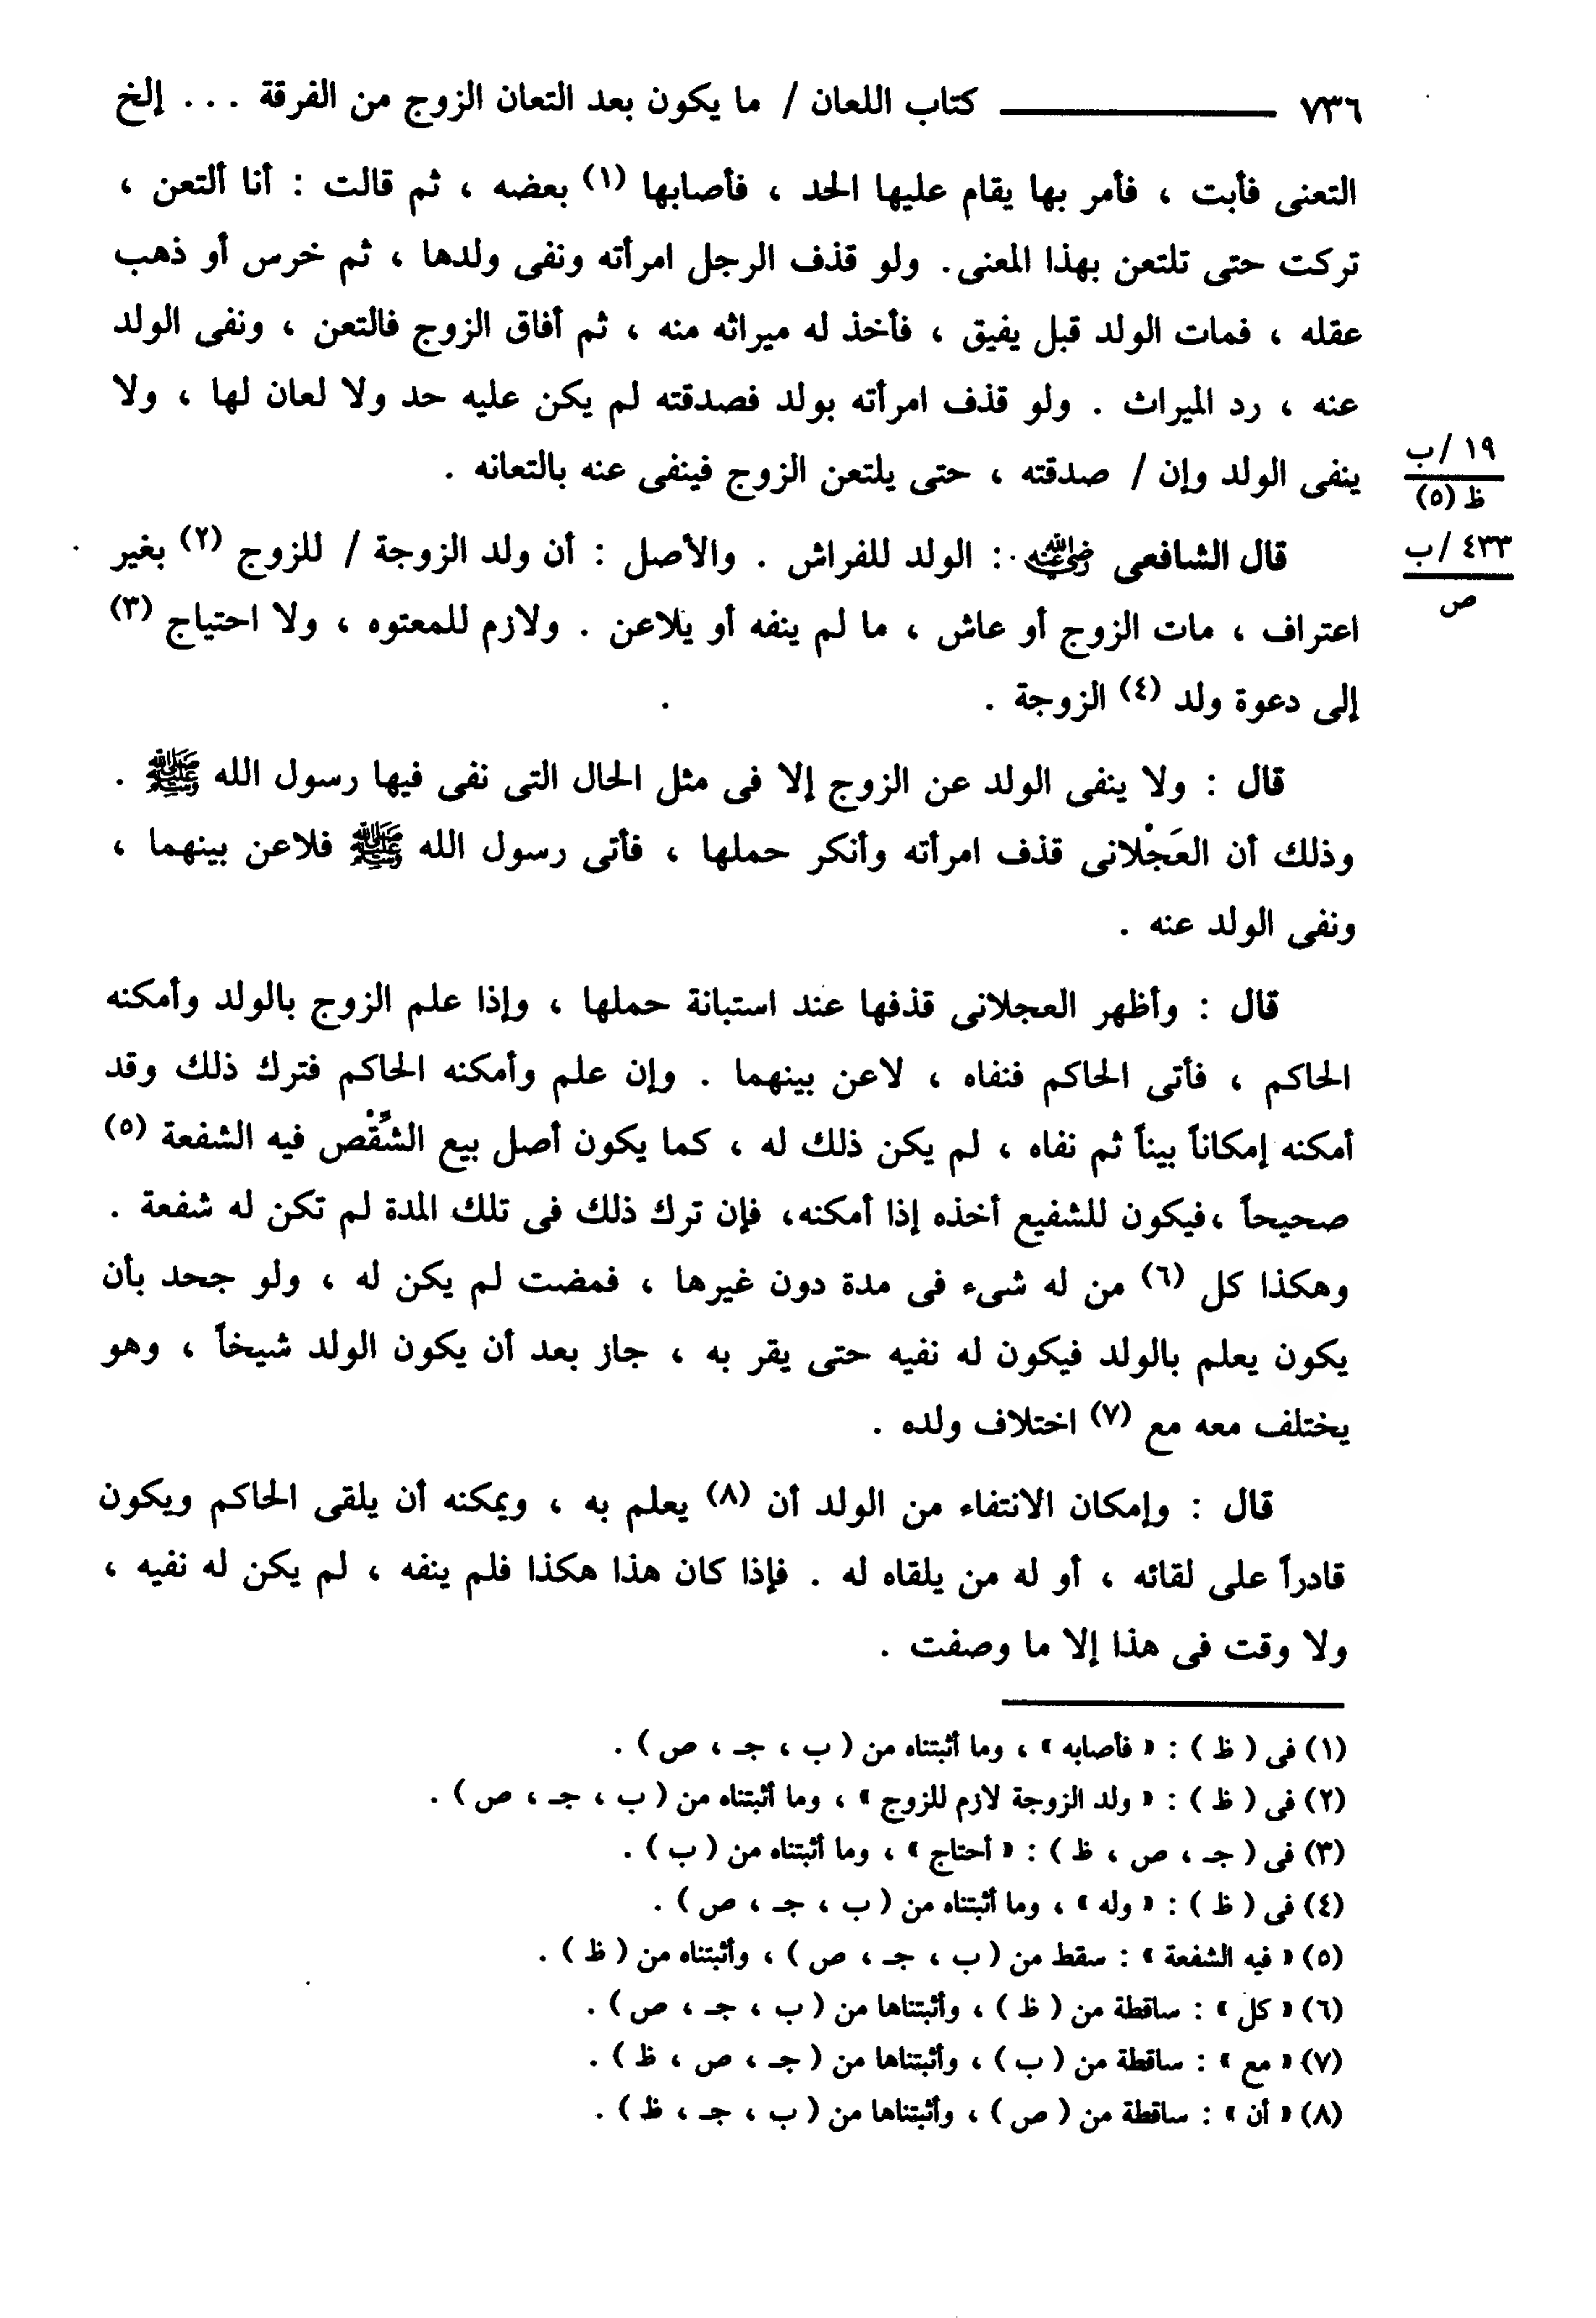 ٧٣٦ ــــــــــــ كتاب اللعان / ما يكون بعد التعان الزوج من الفرقة . . . إلخ
التعنى فأبت ، فأمر بها يقام عليها الحد ، فأصابها (١) بعضه ، ثم قالت : أنا ألتعن ،
تركت حتى تلتعن بهذا المعنى. ولو قذف الرجل امرأته ونفى ولدها ، ثم خرس أو ذهب
عقله ، فمات الولد قبل يفيق ، فأخذ له ميراثه منه ، ثم أفاق الزوج فالتعن ، ونفى الولد
عنه ، رد الميراث . ولو قذف امرأته بولد فصدقته لم يكن عليه حد ولا لعان لها ، ولا
ينفى الولد وإن / صدقته ، حتى يلتعن الزوج فينفى عنه بالتعانه .
١٩ /ب
ظ (٥)
قال الشافعى رضي الله عنه : الولد للفراش . والأصل : أن ولد الزوجة / للزوج (٢) بغير
٤٣٣ /ب
ص
اعتراف ، مات الزوج أو عاش ، ما لم ينفه أو يلاعن . ولازم للمعتوه ، ولا احتياج (٣)
إلى دعوة ولد (٤) الزوجة .
قال : ولا ينفى الولد عن الزوج إلا فى مثل الحال التى نفى فيها رسول الله ﷺ .
وذلك أن العَجْلانى قذف امرأته وأنكر حملها ، فأتى رسول الله ﷺ فلاعن بينهما ،
ونفى الولد عنه .
قال : وأظهر العجلانى قذفها عند استبانة حملها ، وإذا علم الزوج بالولد وأمكنه
الحاكم ، فأتى الحاكم فنفاه ، لاعن بينهما . وإن علم وأمكنه الحاكم فترك ذلك وقد
أمكنه إمكاناً بيناً ثم نفاه ، لم يكن ذلك له ، كما يكون أصل بيع الشِّقْص فيه الشفعة (٥)
صحيحاً ،فيكون للشفيع أخذه إذا أمكنه، فإن ترك ذلك فى تلك المدة لم تكن له شفعة .
وهكذا كل (٦) من له شىء فى مدة دون غيرها ، فمضت لم يكن له ، ولو جحد بأن
يكون يعلم بالولد فيكون له نفيه حتى يقر به ، جاز بعد أن يكون الولد شيخاً ، وهو
يختلف معه مع (٧) اختلاف ولده .
قال : وإمكان الانتفاء من الولد أن (٨) يعلم به ، ويمكنه أن يلقى الحاكم ويكون
قادراً على لقائه ، أو له من يلقاه له . فإذا كان هذا هكذا فلم ينفه ، لم يكن له نفيه ،
ولا وقت فى هذا إلا ما وصفت .
(١) فى ( ظ ) : « فأصابه » ، وما أثبتناه من ( ب ، جـ ، ص ) .
(٢) فى ( ظ ) : « ولد الزوجة لازم للزوج » ، وما أثبتناه من ( ب ، جـ ، ص ) .
(٣) فى ( جـ ، ص ، ظ ) : « أحتاج » ، وما أثبتناه من ( ب ) .
(٤) فى ( ظ ) : « وله » ، وما أثبتناه من ( ب ، جـ ، ص ) .
(٥) « فيه الشفعة » : سقط من ( ب ، جـ ، ص ) ، وأثبتناه من ( ظ ) .
(٦) « كل » : ساقطة من ( ظ ) ، وأثبتناها من ( ب ، جـ ، ص ) .
(٧) « مع » : ساقطة من ( ب ) ، وأثبتناها من ( جـ ، ص ، ظ ) .
(٨) « أن » : ساقطة من ( ص ) ، وأثبتناها من ( ب ، جـ ، ظ ) .